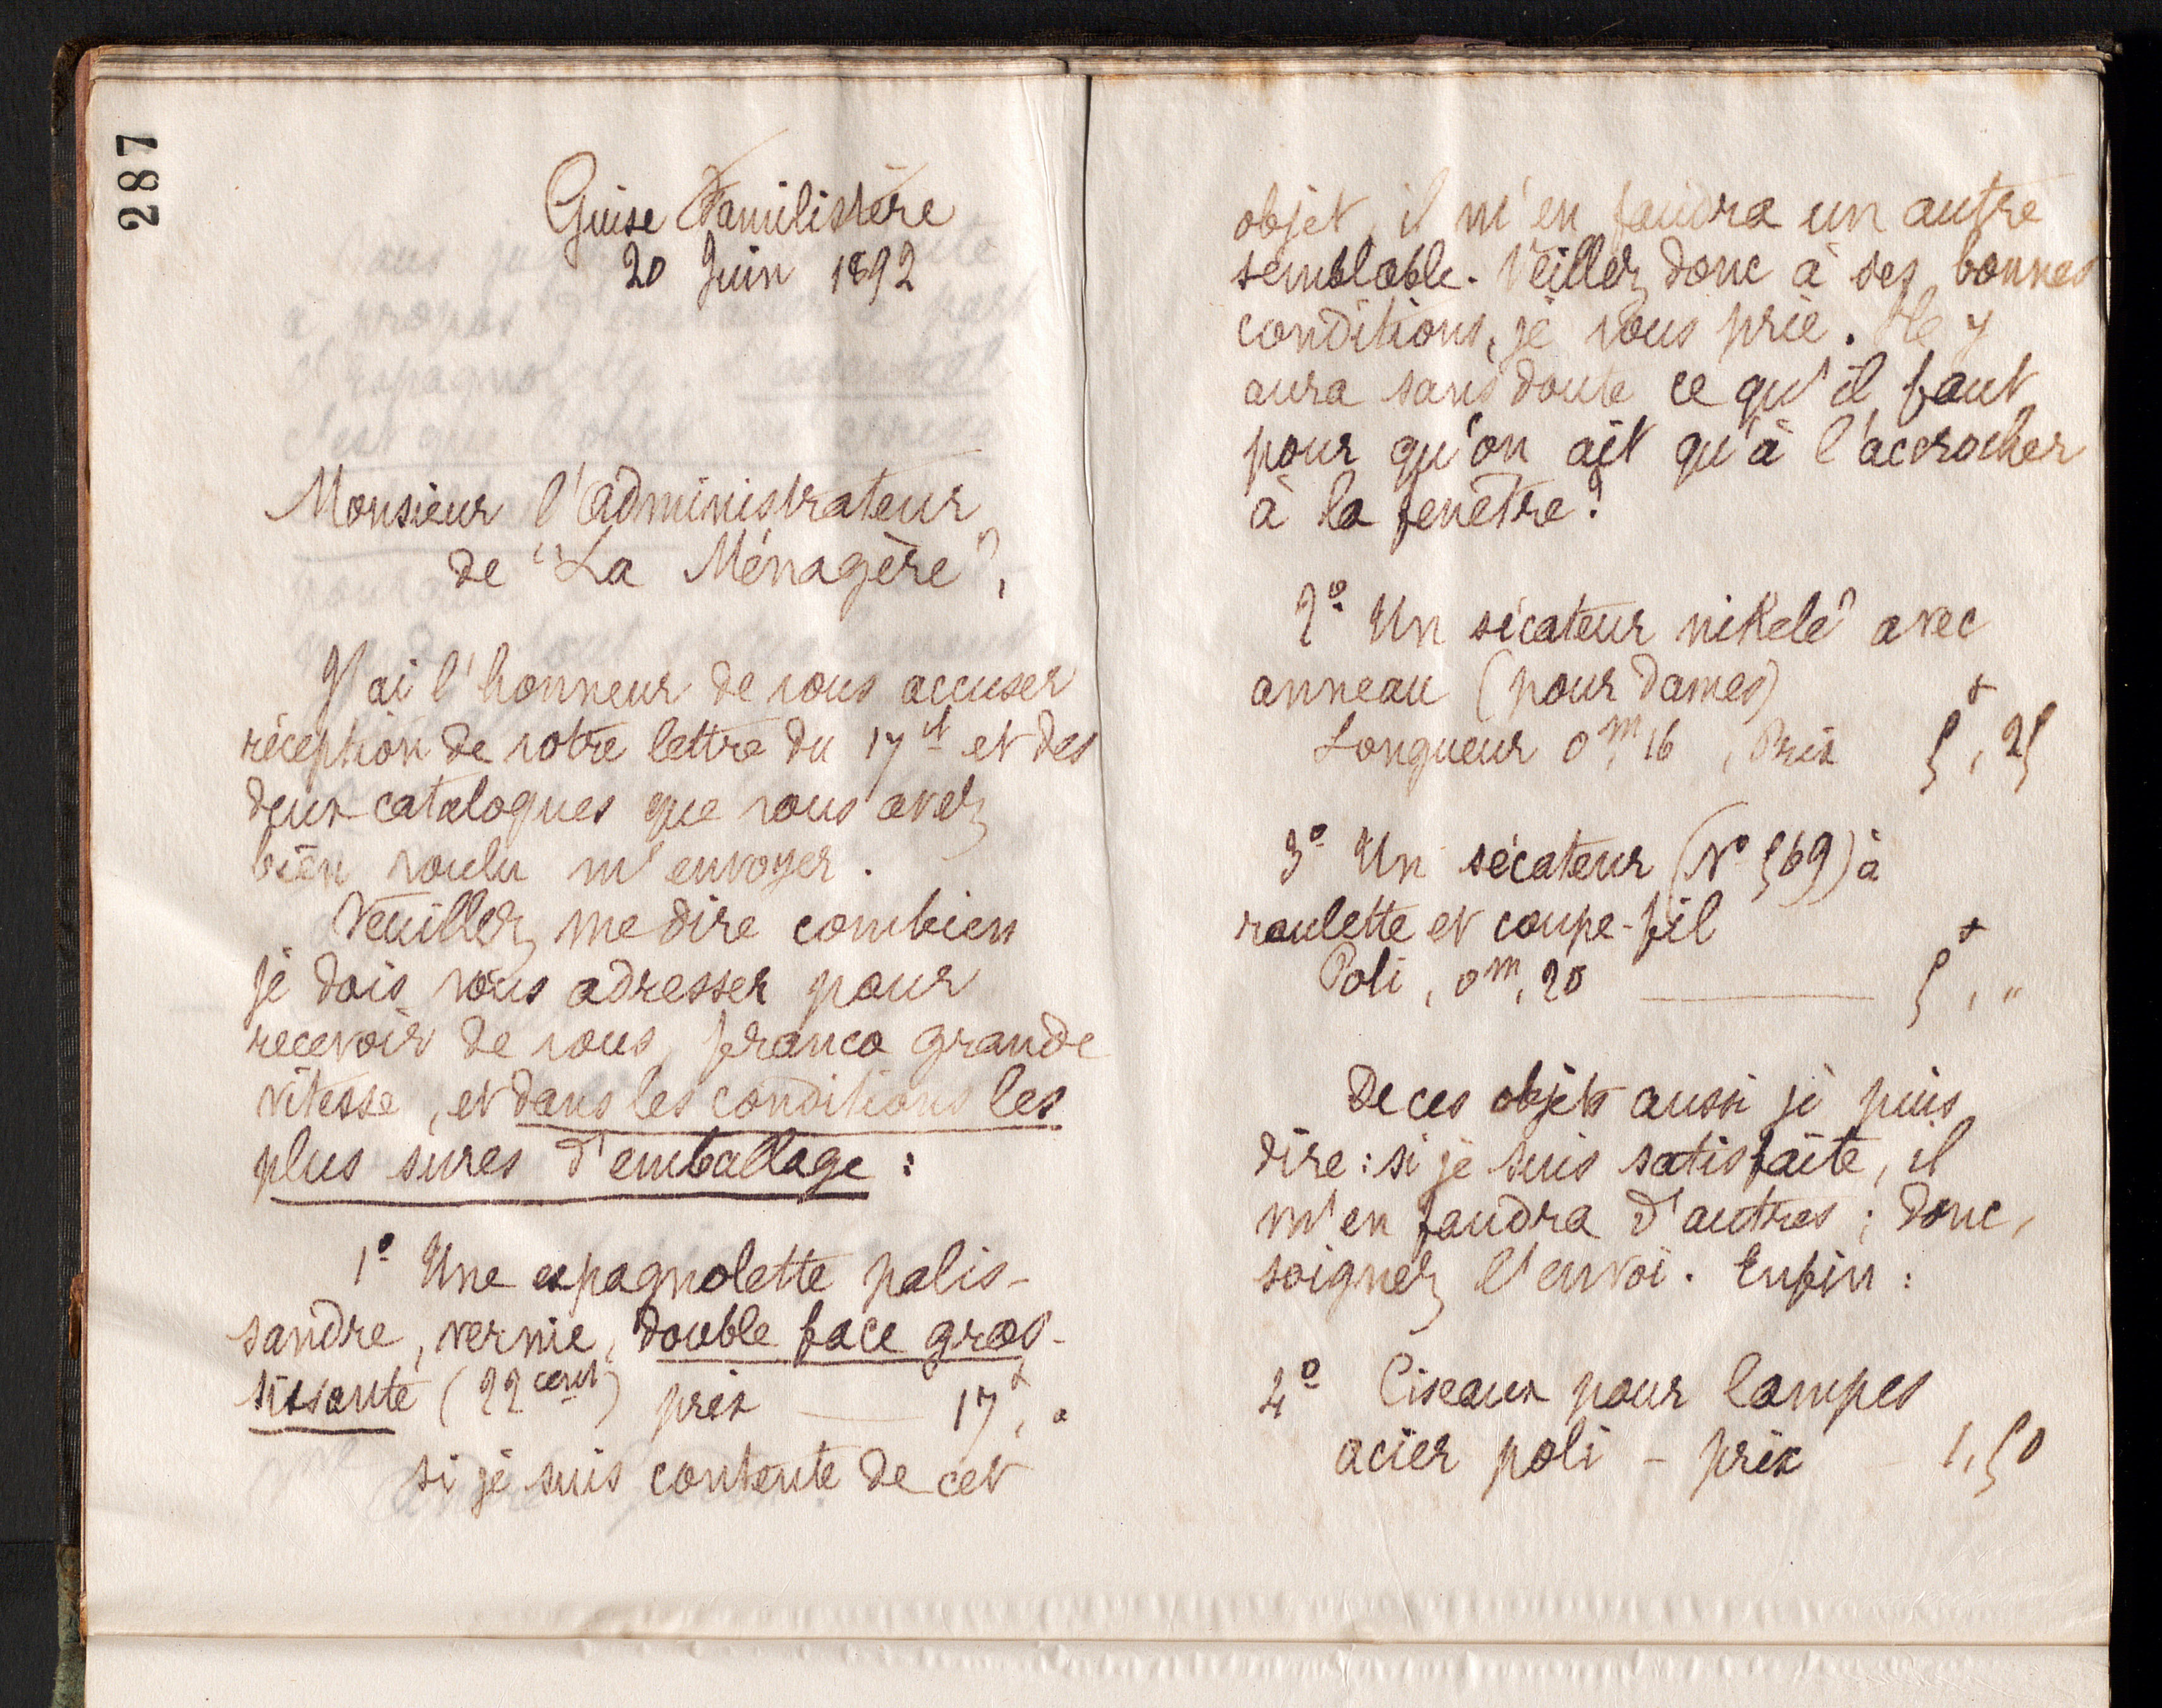 287
Guise Familistère
20 Juin 1892
Monsieur l'administrateur
de "La Ménagère",
J'ai l'honneur de vous accuser
réception de votre lettre du 17 ct et des
deux catalogues que vous avez
bien voulu m'envoyer.
Veuillez me dire combien
je dois vous adresser pour
recevoir de vous, franco grande
vitesse, et dans les conditions les
plus sures d'emballage :
1º Une espagnolette palis-
sandre, vernie, double face gros-
sissante (22 cent) prix — 17f, "
si je suis contente de cet
objet, il m'en faudra un autre
semblable. Veillez donc à ses bonnes
conditions, je vous prie. Il y
aura sans doute ce qu'il faut
pour qu'on ait qu'à l'accrocher
à la fenêtre?
2º Un sécateur nikelé avec
anneau (pour dames)
Longueur 0m,16, Prix 5f,25
3º Un sécateur (Nº 569) à
roulette et coupe-fil
Poli, 0m,20 — 5f, "
De ces objets aussi je puis
dire : si je suis satisfaite, il
m'en faudra d'autres ; donc,
soignez l'envoi. Enfin :
4º Ciseaux pour lampes
acier poli - prix - 1,50